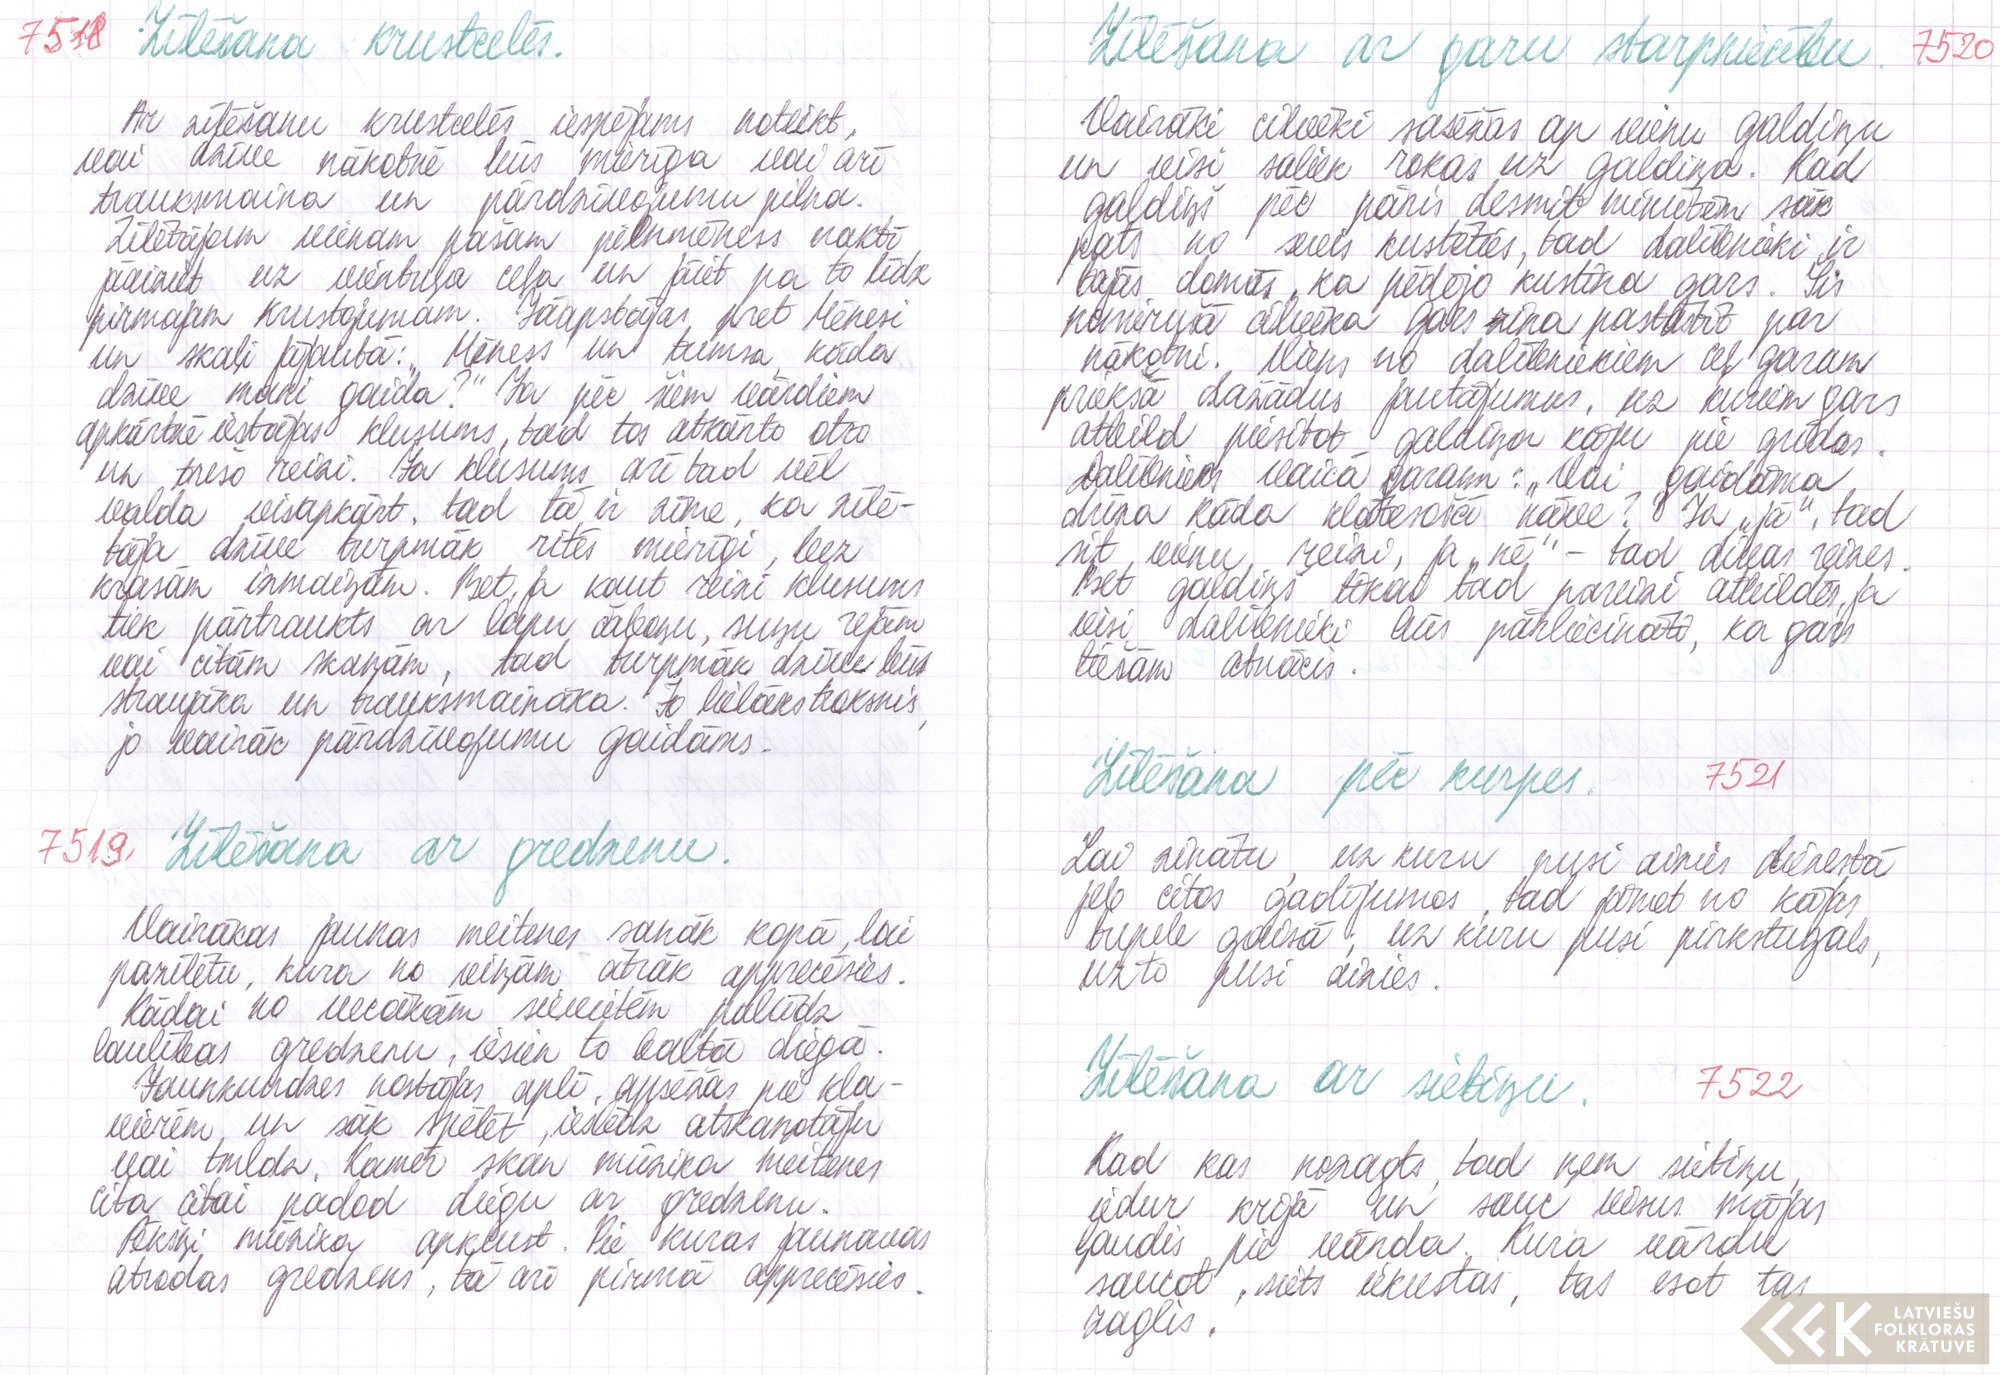 7518 Zīlēšana krustcelēs.
Ar zīlēšanu krustcelēs iespējams noteikt,
vai dzīve nākotnē būs mierīga vai arī
trauksmaina un pārdzīvojumu pilna.
Zīlētājam vienam pašam pilnmēness naktī
jāiziet uz vientuļa ceļa un jāiet pa to līdz
pirmajam krustojumam. Jāapstājas pret Mēnesi
un skaļi jājautā: „Mēness un tumsa, kāda
dzīve mani gaida?“ Ja pēc šiem vārdiem
apkārtnē iestājas klusums, tad tos atkārto otro
un trešo reizi. Ja klusums arī tad vēl
valda visapkārt, tad tā ir zīme, ka zīlē-
tāja dzīve turpmāk ritēs mierīgi, bez
krasām izmaiņām. Bet, ja kaut reizi klusums
tiek pārtraukts ar lapu čaboņu, suņu rejām
vai citām skaņām, tad turpmāk dzīve būs
straujāka un trauksmaināka. Jo lielāks troksnis,
jo vairāk pārdzīvojumu gaidāms.
7519. Zīlēšana ar gredzenu.
Vairākas jaunas meitenes sanāk kopā, lai
pazīlētu, kura no viņām ātrāk apprecēsies.
Kādai no vecākām sievietēm palūdz
laulības gredzenu, iesien to baltā diegā.
Jaunkundzes nostājas aplī, apsēžas pie kla-
vierēm un sāk spēlēt, ieslēdz atskaņotāju
vai tmldz. Kamēr skan mūzika meitenes
cita citai padod diegu ar gredzenu.
Pēkšņi mūzika apklust. Pie kuras jaunavas
atrodas gredzens, tā arī pirmā apprecēsies.
Zīlēšana ar garu starpniecību. 7520
Vairāki cilvēki sasēžas ap vienu galdiņu
un visi saliek rokas uz galdiņa. Kad
galdiņš pēc pāris desmit minūtēm sāk
pats no sevis kustēties, tad dalībnieki ir
tajās domās, ka pēdējo kustina gars. Šis
nomirušā cilvēka gars zina pastāstīt par
nākotni. Viens no dalībniekiem ceļ garam
priekšā dažādus jautājumus, uz kuriem gars
atbild piesitot galdiņa kāju pie grīdas.
Dalībnieks vaicā garam: „Vai gaidāma
drīza kāda klātesošā nāve?“ Ja „jā“, tad
sit vienu reizi, ja „nē“ – tad divas reizes.
Bet galdiņš tikai tad pareizi atbildēs, ja
visi dalībnieki būs pārliecināti, ka gars
tiešām atnācis.
Zīlēšana pēc kurpes. 7521
Lai zinātu, uz kuru pusi aizies dienestā
jeb citos gadījumos, tad jāmet no kājas
tupele gaisā, uz kuru pusi pirkstugals,
uz to pusi aizies.
Zīlēšana ar sietiņu. 7522
Kad kas nozagts, tad ņem sietiņu,
iedur krijā un sauc visus mājas
ļaudis pie vārda. Kura vārdu
saucot, siets iekustas, tas esot tas
zaglis.
LATVIEŠU
FOLKLORAS
KRĀTUVE